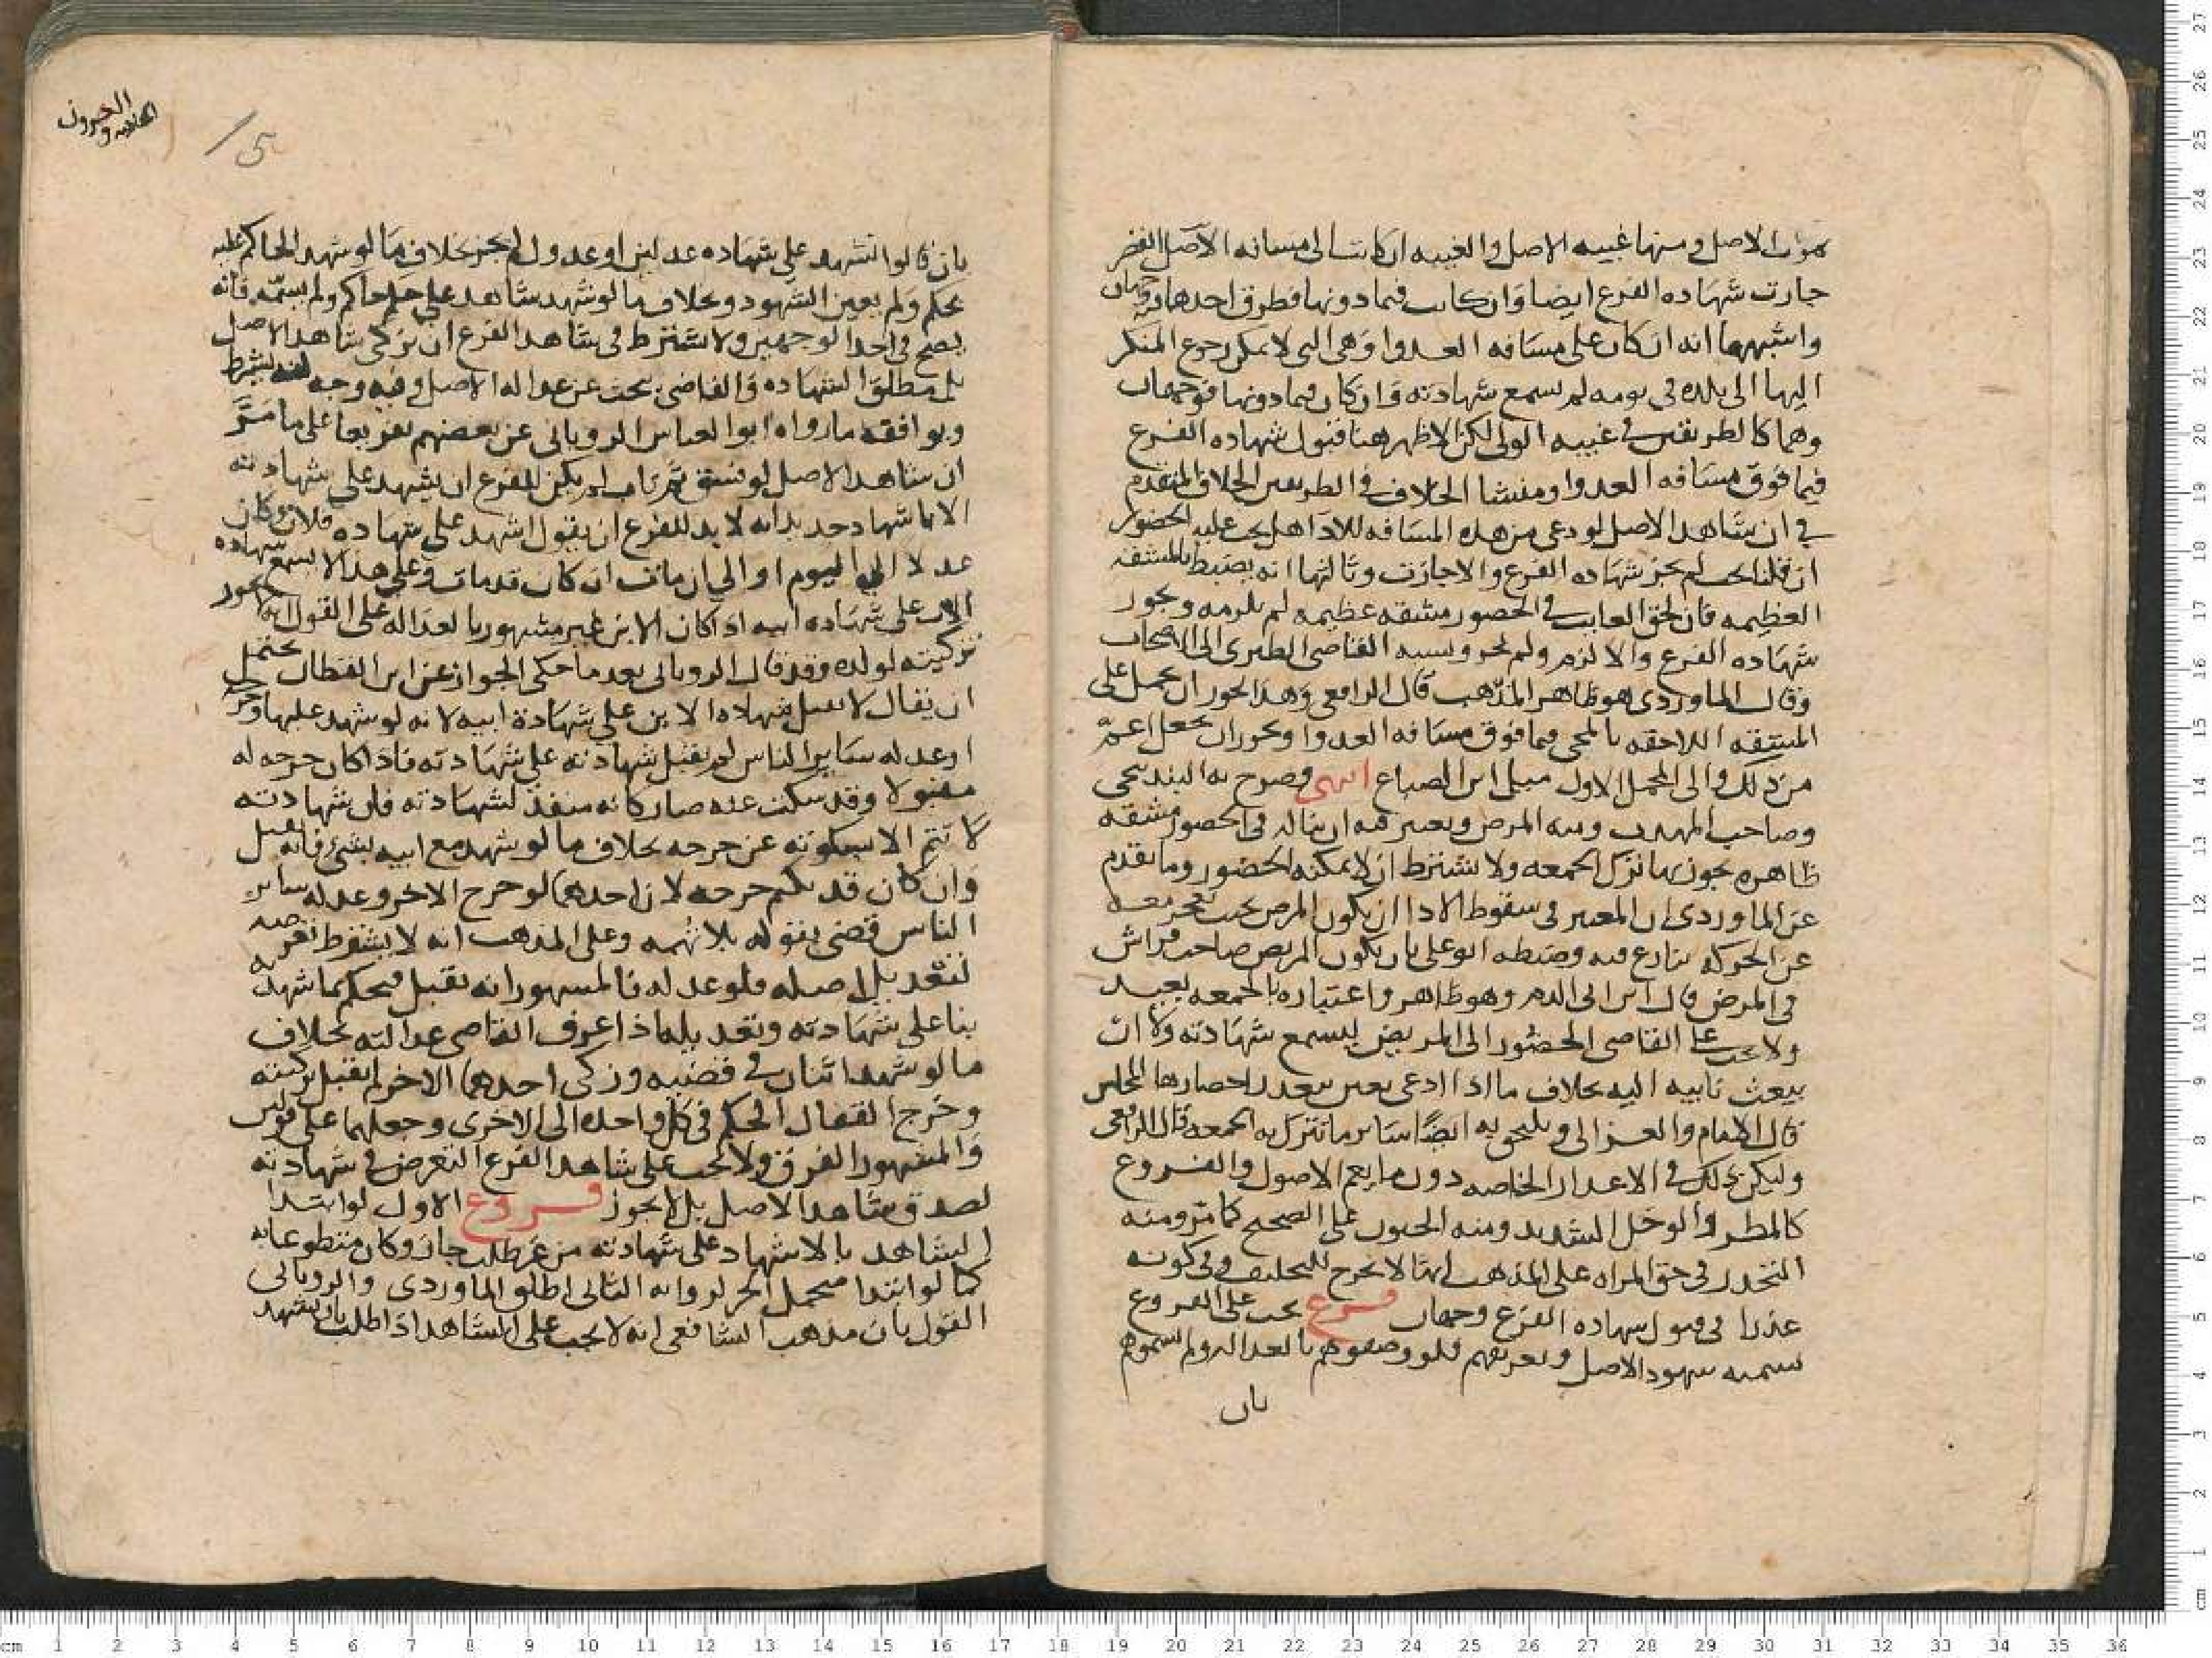 موت الاصل ومنها غيبه الاصل والغيبه ان كانت الى مسافه الاصل القصر
جازت شهاده الفرع ايضا وان كانت فيما دونها فطرق احدها وجهان
واشبههما انه ان كان على مسافه العدوا وهي التي لا يمكن رجوع المبكر
اليها الى بلده في يومه لم تسمع شهادته وان كان فيما دونها فوجهان
وهما كالطريقين في غيبه الولي لكن الاظهر هنا قبول شهاده الفرع
فيما فوق مسافه العدوا ومنشا الخلاف في الطريقين الخلاف المتقدم
في ان شاهد الاصل لو دعي من هذه المسافه للادا هل يجب عليه الحضور
ان قلنا يجب لم يجز شهاده الفرع والا جازت وثالثها انه يضبط بالمشقه
العظيمه فان لحق الغايب في الحضور مشقه عظيمه لم يلزمه ويجوز
شهاده الفرع والا لزم ولم يجز ونسبه القاضي الطبري الى الاصحاب
وقال الماوردي هو ظاهر المذهب قال الرافعي وهذا يجوز ان يحمل على
المشقه اللاحقه بالمجي فيما فوق مسافه العدوا ويجوز ان يجعل اعم
من ذلك والى المحمل الاول ميل ابن الصباغ انتهى وصرح به البندنيجي
وصاحب المهذب ومنه المرض ويعتبر فيه ان يناله في الحضور مشقه
ظاهره يجوز بها ترك الجمعه ولا يشترط ان لا يمكنه الحضور وما تقدم
عن الماوردي ان المعتبر في سقوط الادا ان يكون المرض بحيث يعجز معه
عن الحركه ينازع فيه وضبطه ابو علي بان يكون المريض صاحب فراش
في المرض قال ابن ابي الدم وهو ظاهر واعتباره بالجمعه بعيد
ولا يجب على القاضي الحضور الى المريض ليسمع شهادته ولا ان
يبعث نايبه اليه بخلاف ما اذا ادعى بعين يتعذر احضارها المجلس
قال الامام والغزالي ويلتحق به ايضا ساير ما تترك به الجمعه قال الرافعي
وليكن ذلك في الاعذار الخاصه دون ما يعم الاصول والفروع
كالمطر والوحل الشديد ومنه الجنون على الصحيح كما مر ومنه
التخدر في حق المراه على المذهب انها لا تخرج للتحليف وفي كونه
عذرا في قبول شهاده الفرع وجهان فرع يجب على الفروع
تسميه شهود الاصل وتعريفهم فلو وصفوهم بالعداله ولم يسموهم
بان
بان قالوا نشهد على شهاده عدلين او عدول لم يجز بخلاف ما لو شهد الحاكم عليه
بحكم ولم يعين الشهود وبخلاف ما لو شهد شاهد على حكم حاكم ولم يسمه فانه
يصح في احد الوجهين ولا يشترط في شاهد الفرع ان يزكي شاهد الاصل
بل مطلق الشهاده والقاضي يبحث عن عداله الاصل وفيه وجه انه يشترط
ويوافقه ما رواه ابو العباس الروياني عن بعضهم تفريعا على ما مر
ان شاهد الاصل لو فسق ثم تاب لم يكن للفرع ان يشهد على شهادته
الا باشهاد جديد انه لا بد للفرع ان يقول اشهد على شهاده فلان وكان
عدلا الى اليوم او الى ان مات ان كان قد مات وعلى هذا لا تسمع شهاده
الابن على شهاده ابيه اذا كان الابن غير مشهور بالعداله على القول انه لا يجوز
تزكيته لولده وقد قال الروياني بعد ما حكى الجواز عن ابن القطان يحتمل
ان يقال لا تقبل شهاده الابن على شهادة ابيه لانه لو شهد عليها وجرح
او عدله ساير الناس لم يقبل شهادته على شهادته فاذا كان جرحه له
مقبولا وقد سكت عنه صار كانه منفذ لشهادته فان شهادته
لا تتم الا بسكوته عن جرحه بخلاف ما لو شهد مع ابيه بشئ فانه يقبل
وان كان قد يكتم جرحه لان احدهما لو جرح الاخر وعدله ساير
الناس قضى بقوله بلا تهمه وعلى المذهب انه لا يشترط تعرضه
لتعديل اصله فلو عدله فالمشهور انه يقبل فيحكم بما شهد به
بنا على شهادته وتعديله اذا عرف القاضي عدالته بخلاف
ما لو شهد اثنان في قضيه وزكى احدهما الاخر لم تقبل تزكيته
وخرج القفال الحكم في كل واحده الى الاخرى وجعلهما على قولين
والمشهور الفرق ولا يجب على شاهد الفرع التعرض في شهادته
لصدق شاهد الاصل بل لا يجوز فروع الاول لو ابتدا
الشاهد بالاشهاد على شهادته من غير طلب جاز وكان متطوعا به
كما لو ابتدا فتحمل الثاني اطلق الماوردي والروياني
القول بان مذهب الشافعي انه لا يجب على الشاهد اذا طلب بان يشهد